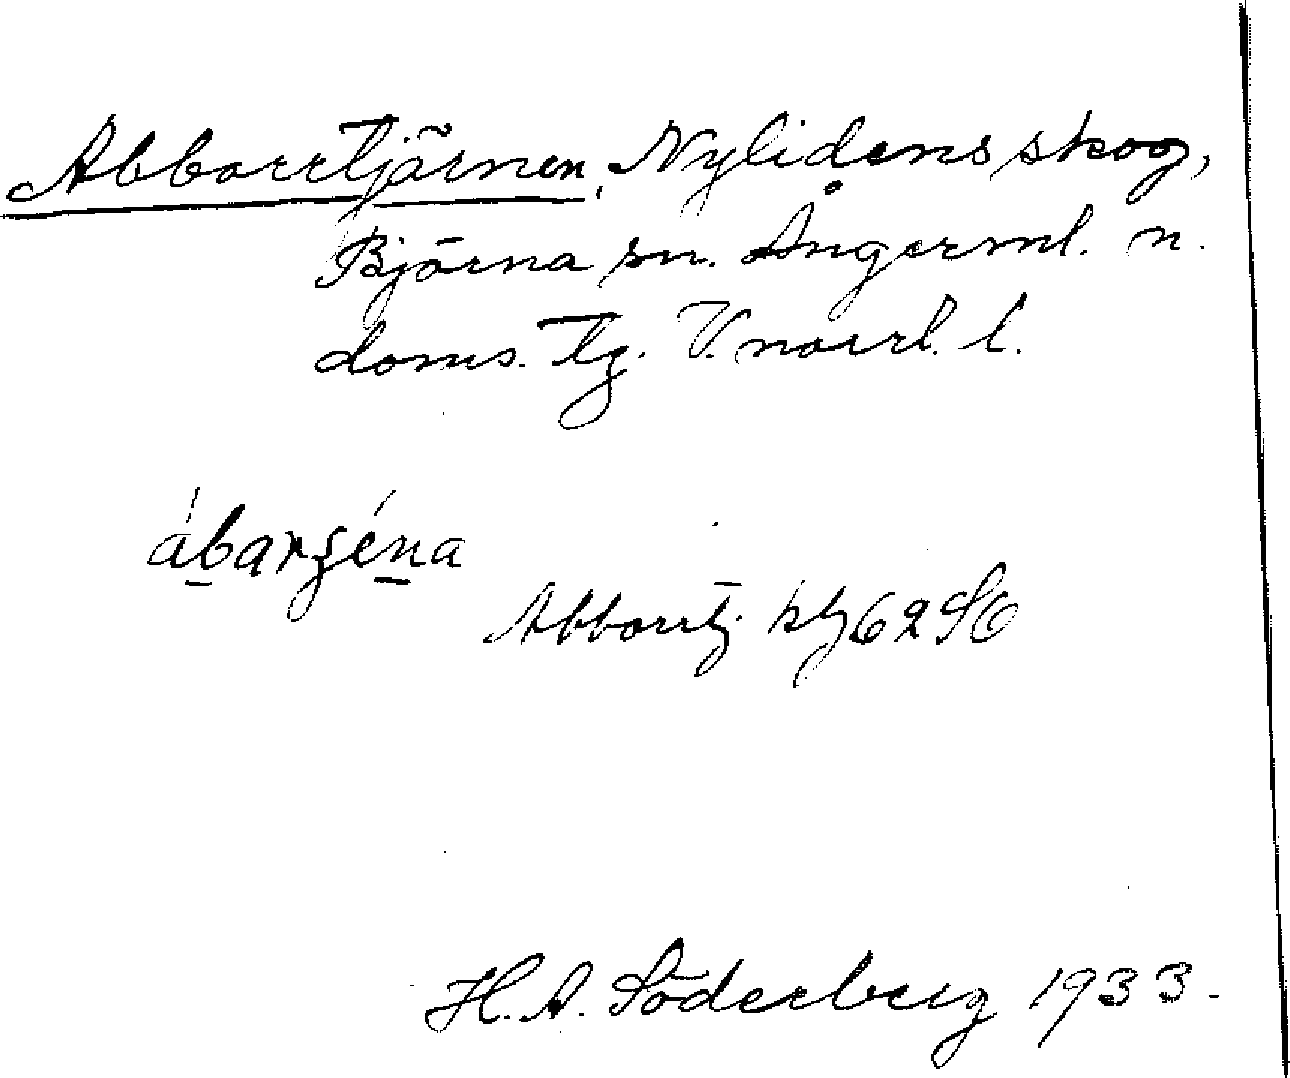 Abborrtjärnen, Nylidens skog,
Björna sn. Ångerml. n.
doms. tg. V.norrl. l.
ábarʂéna
Abborrtj. ktj 62 SO
H. A. Söderberg 1933.